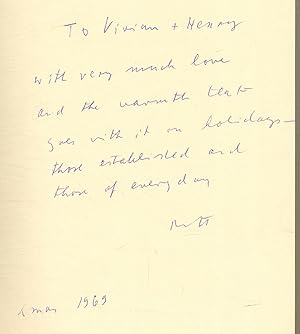 To Vivian + Henry
with very much love
and the warmth that
goes with it on holidays—
those established and
those of everyday
Xmas 1969